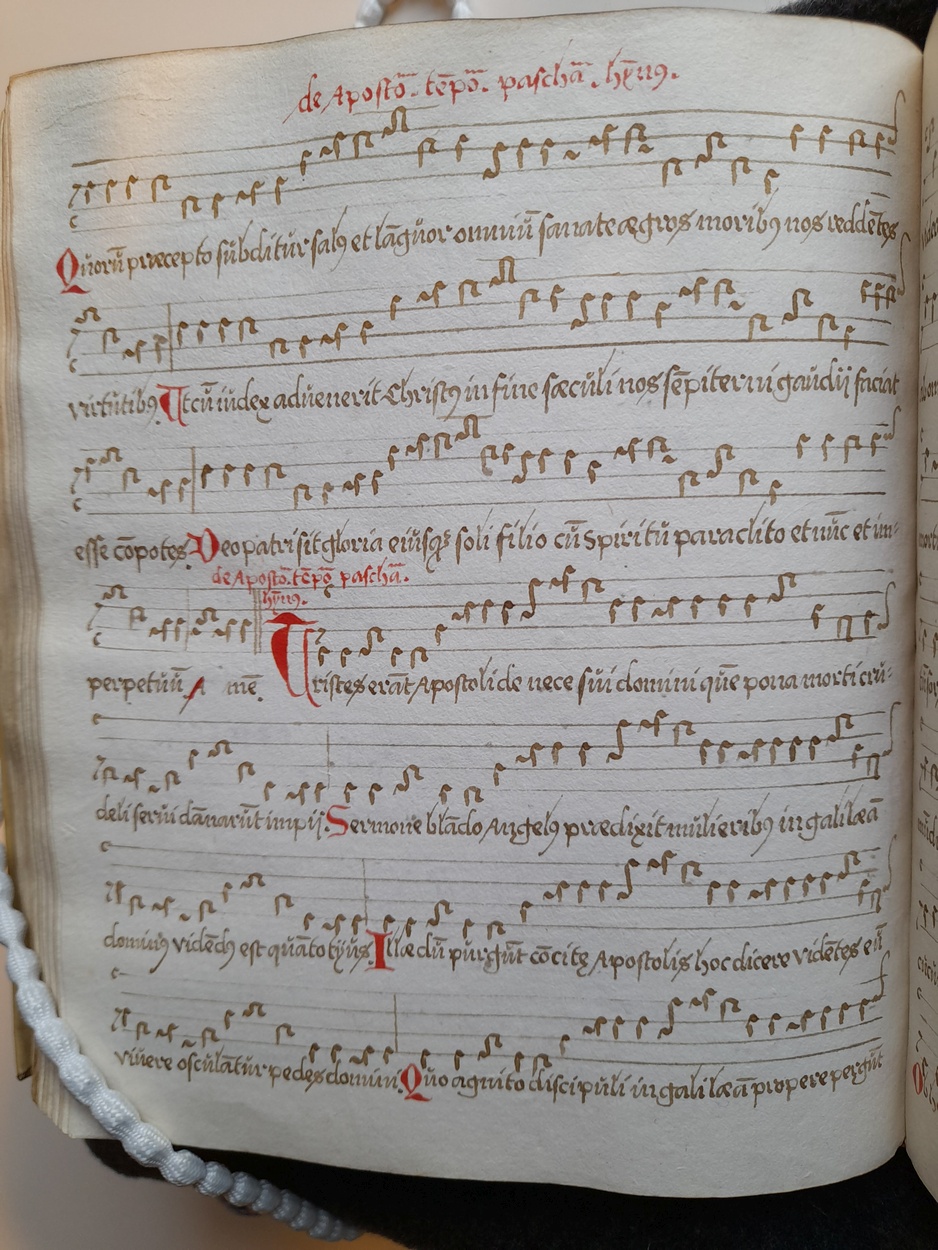 de Apostō. tēpō. paschā. hȳn9.
Quorū præcepto subditur sal9 et lāguor omniū sanate ægros morib9 nos reddētes
virtutib9 Ut cū iudex aduenerit Christ9 in fine sæculi nos sēpiterni gaudij faciat
esse cōpotes. Deo patri sit gloria eiusq3 soli filio cū spiritu paraclito et nūc et in=
de Apostō. tēpō paschā.
hȳn9.
perpetuū A mē Tristes erāt Apostoli de nece sui domini quē pœna morti cru=
deli serui dānarūt impij. Sermone blādo Angel9 prædixit mulierib9 in galilæā
domin9 vidēd9 est quātotius Illæ dū purgūt cōcitę Apostolis hoc dicere vidētes eū
viuere osculātur pedes domini Quo agnito discipuli in galilæā propere pergūt